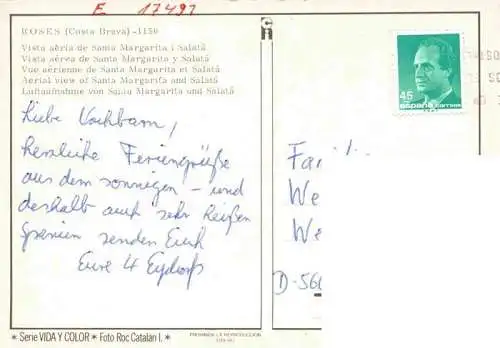 E 17497
ROSES (Costa Brava) -1150
Vista aèria de Santa Margarita i Salatá
Vista aérea de Santa Margarita y Salatá
Vue aérienne de Santa Margarita et Salatá
Aerial view of Santa Margarita and Salatá
Luftaufnahme von Santa Margarita und Salatá
45
españa correos
Liebe Nachbarn,
herzliche Feriengrüße
aus dem sonnigen – und
deshalb auch sehr heißen
Spanien senden Euch
Eure 4
Fa
We
We
D-560
* Serie VIDA Y COLOR * Foto Roc Catalan I. *
PROHIBIDA LA REPRODUCCION